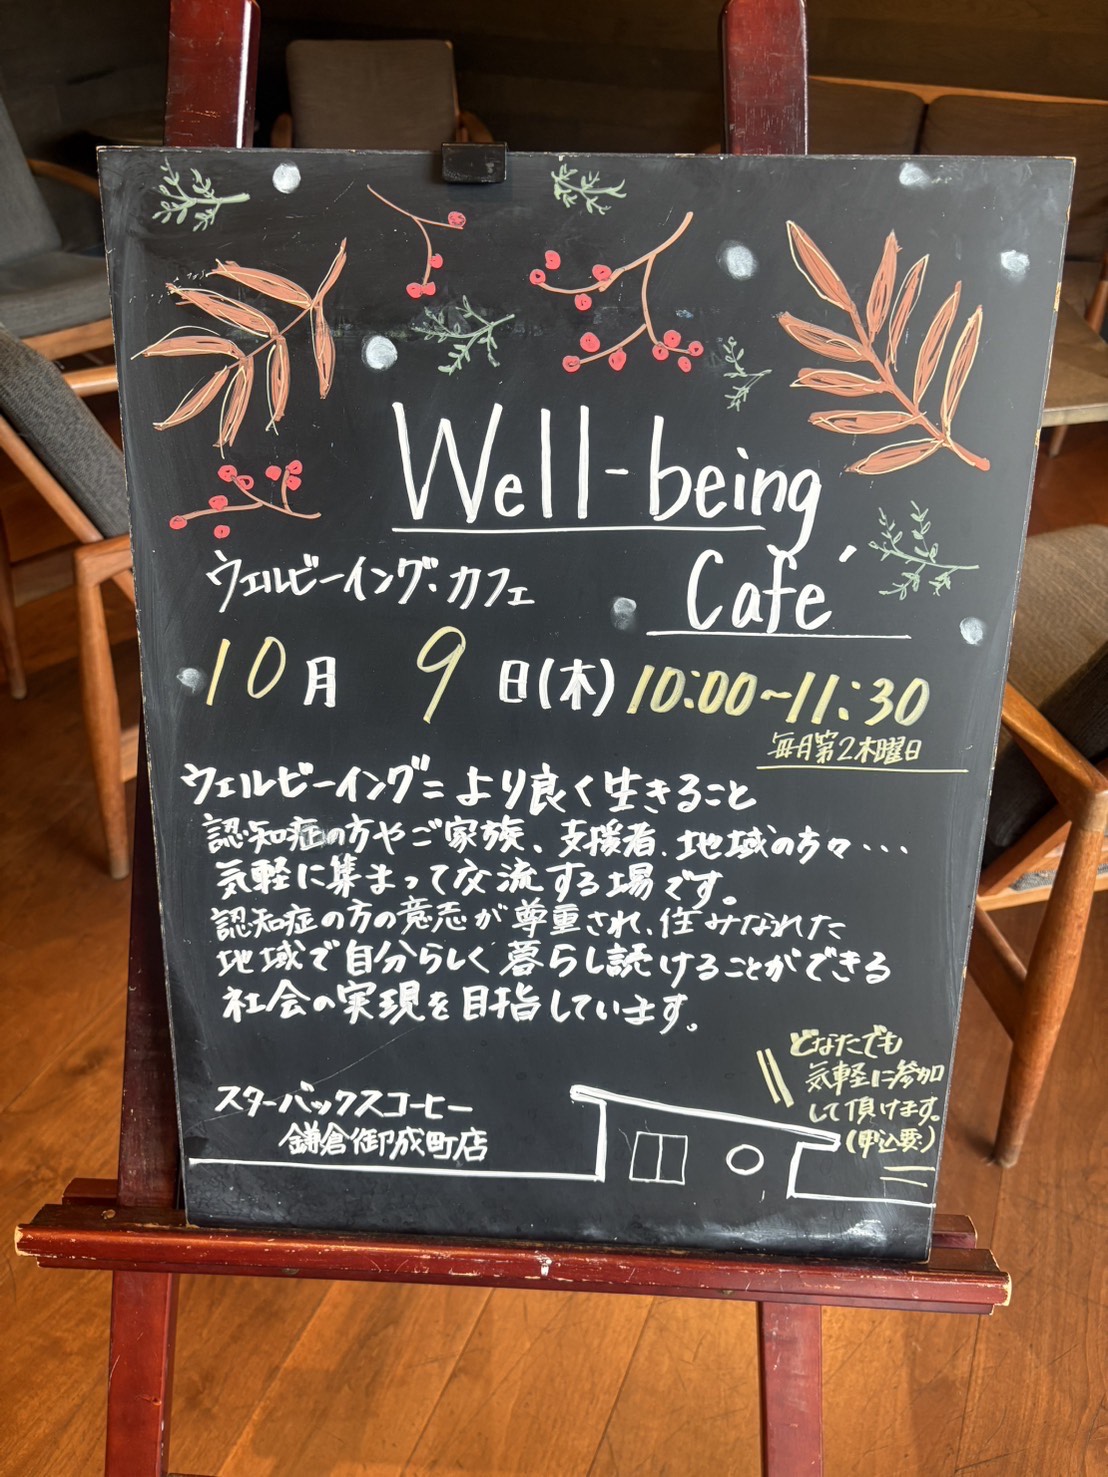 Well-being
Café
ウェルビーイング・カフェ
10月 9日(木) 10:00~11:30
毎月第2木曜日
ウェルビーイング=より良く生きること
認知症の方やご家族、支援者、地域の方々・・・
気軽に集まって交流する場です。
認知症の方の意志が尊重され、住みなれた
地域で自分らしく暮らし続けることができる
社会の実現を目指しています。
どなたでも
気軽に参加
して頂けます。
(申込要)
スターバックスコーヒー
鎌倉御成町店